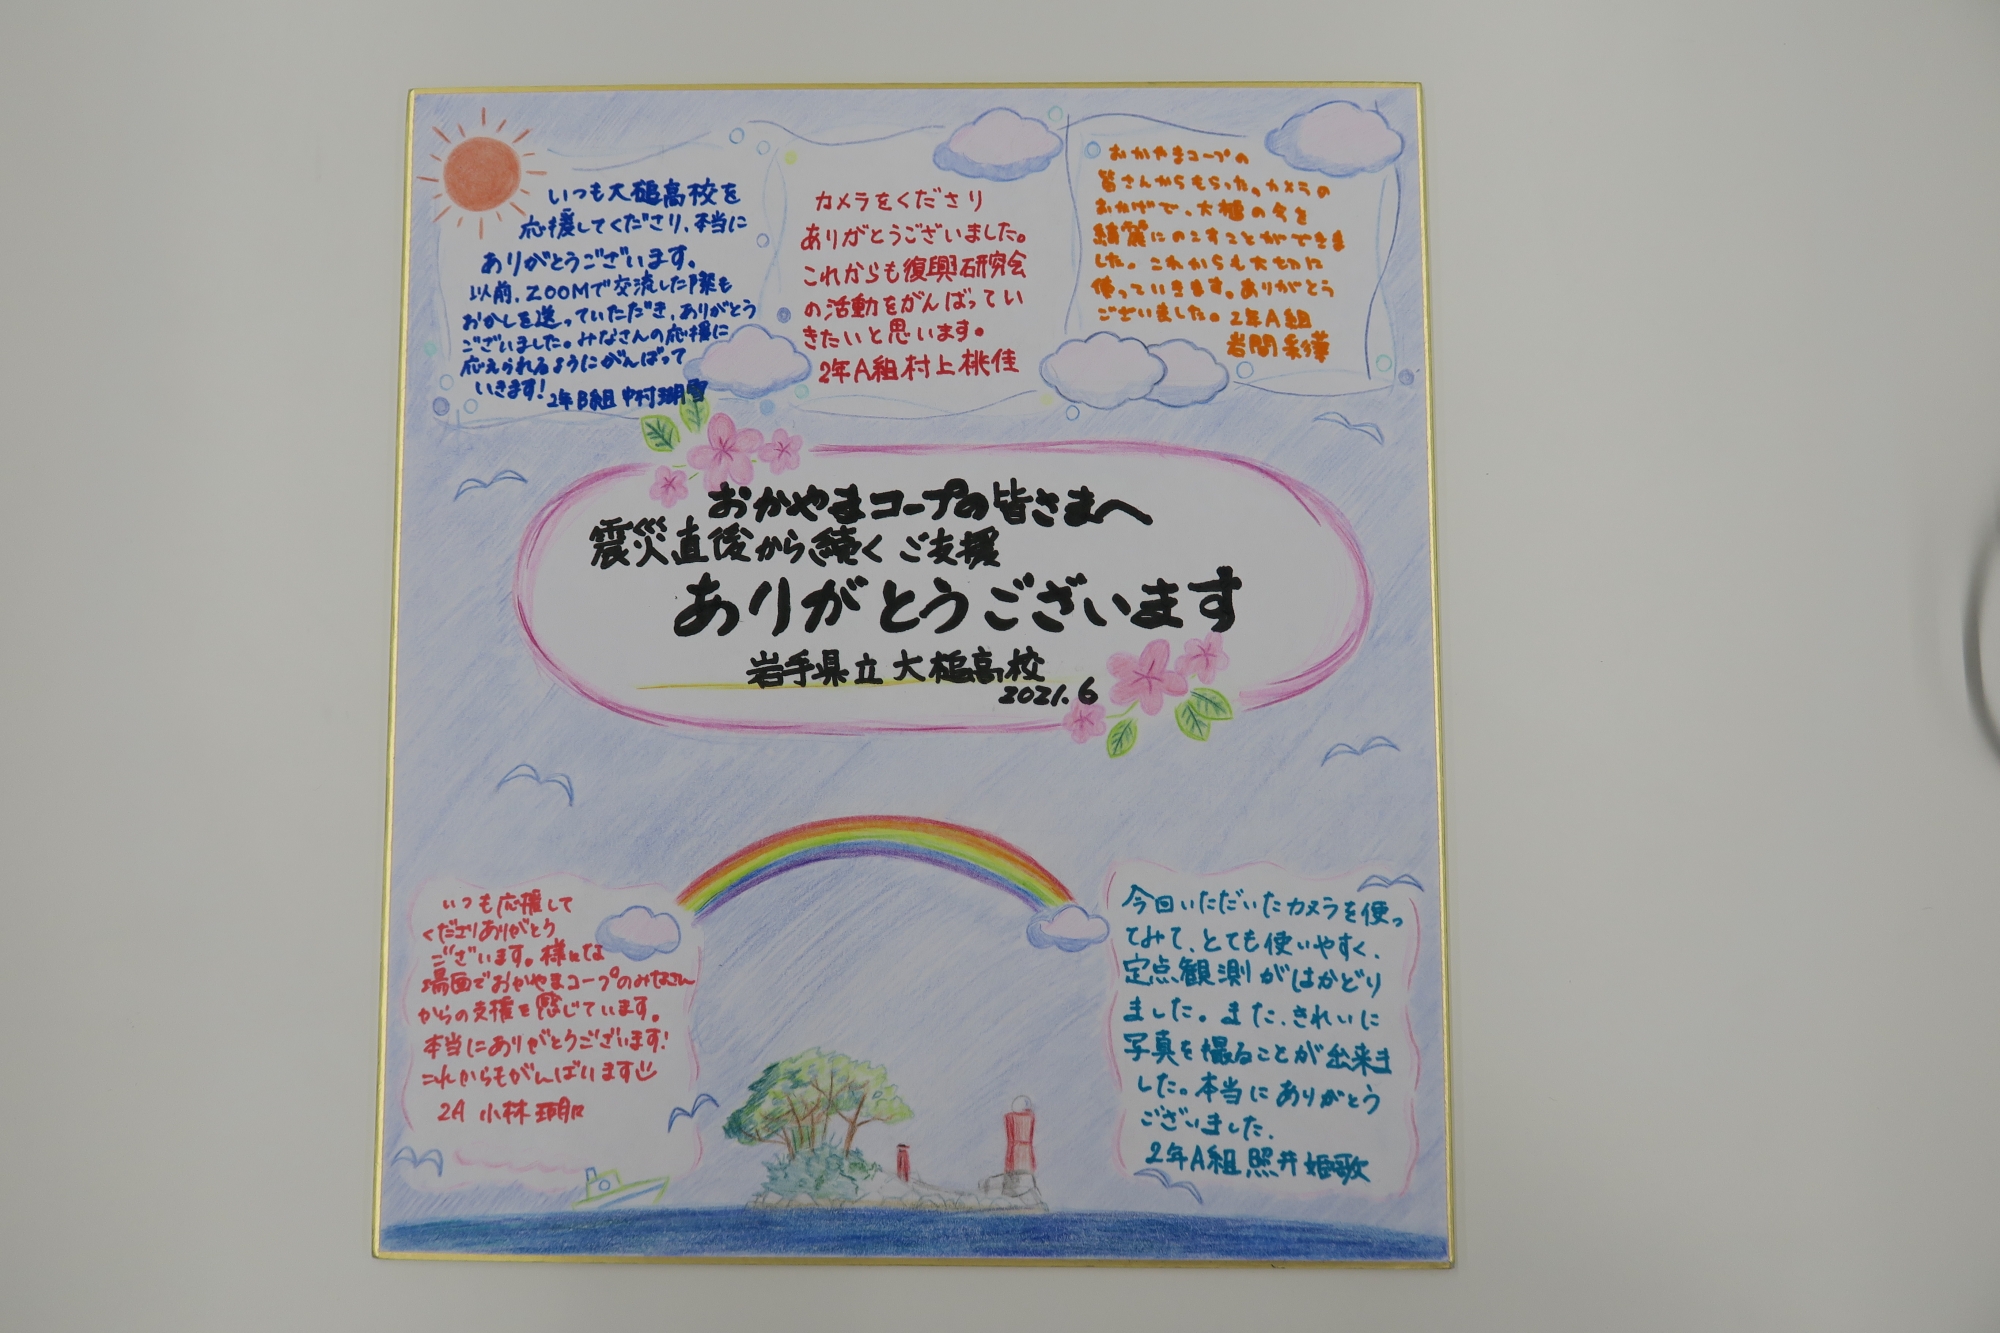 いつも大槌高校を
応援してくださり、本当に
ありがとうございます。
以前、ZOOMで交流した際も
おかしを送っていただき、ありがとう
ございました。みなさんの応援に
応えられるようにがんばって
いきます!
2年B組 中村瑚雪
カメラをくださり
ありがとうございました。
これからも復興研究会
の活動をがんばってい
きたいと思います。
2年A組村上桃佳
おかやまコープの
皆さんからもらった。カメラの
おかげで、大槌の今を
綺麗にのこすことができま
した。これからも大切に
使っていきます。ありがとう
ございました。2年A組
岩間
おかやまコープの皆さまへ
震災直後から続くご支援
ありがとうございます
岩手県立大槌高校
2021.6
いつも応援して
くださりありがとう
ございます。様々な
場面でおかやまコープのみなさん
からの支援を感じています。
本当にありがとうございます!
これからもがんばります
2A 小林
今回いただいたカメラを使っ
てみて、とても使いやすく、
定点観測がはかどり
ました。また、きれいに
写真を撮ることが出来ま
した。本当にありがとう
ございました、
2年A組 照井姫歌